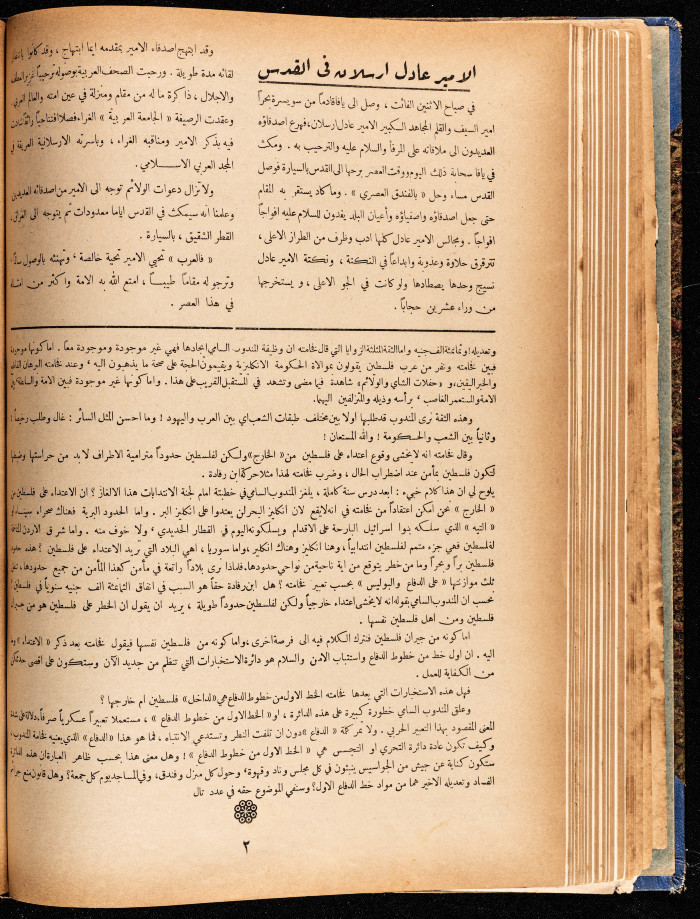 الامير عادل ارسلان في القدس
في صباح الاثنين الفائت ، وصل الى يافا قادماً من سويسرة بحراً
امير السيف والقلم المجاهد الكبير الامير عادل ارسلان، فهرع اصدقاؤه
العديدون الى ملاقاته على المرفأ والسلام عليه والترحيب به . ومكث
في يافا سحابة ذلك اليوم ووقت العصر برحها الى القدس بالسيارة فوصل
القدس مساء وحل « بالفندق العصري » . وما كاد يستقر به المقام
حتى جعل اصدقاؤه واصفياؤه وأعيان البلد يفدون للسلام عليه افواجاً
افواجاً . ومجالس الامير عادل كلها ادب وظرف من الطراز الاعلى ،
تترقرق حلاوة وعذوبة وابداعاً في النكتة ، ونكتة الامير عادل
نسيج وحدها يصطادها ولو كانت في الجو الاعلى ، و يستخرجها
من وراء عشرين حجاباً .
وقد ابتهج اصدقاء الامير بمقدمه ايما ابتهاج ، وقد كانوا
لقائه مدة طويلة . ورحبت الصحف العربية بوصوله ترحيباً غزير العطف
والاجلال ، ذاكرة ما له من مقام ومنزلة في عين امته والعالم العربي.
وعقدت الرصيفة « الجامعة العربية » الغراء فصلا افتتاحياً
فيه بذكر الامير ومناقبه الغراء ، وباسرته الارسلانية العريقة في
المجد العربي الاسلامي .
ولا تزال دعوات الولائم توجه الى الامير من اصدقائه العديدين
وعلمنا انه سيمكث في القدس اياما معدودات ثم يتوجه الى العراق
القطر الشقيق ، بالسيارة .
« فالعرب » تحيي الامير تحية خالصة ، وتهنئه بالوصول
وترجو له مقاماً طيباً ، امتع الله به الامة واكثر من امثاله
في هذا العصر .
وتعديله؛ وثمانمئة الف جنيه واما الثقة المثلثة الزوايا التي قال فخامته ان وظيفة المندوب السامي ايجادها فهي غير موجودة وموجودة معاً . اما كونها موجودة
فبين فخامته ونفر من عرب فلسطين يقولون بموالاة الحكومة الانكليزية ويقيمون الحجة على صحة ما يذهبون اليه ، وعند فخامته البرهان القاطع
والخبر اليقين، و « حفلات الشاي والولائم » شاهدة فيما مضى وتشهد في المستقبل القريب على هذا . واما كونها غير موجودة فبين الامة والسلطة
الامة والمستعمر الغاصب ، برأسه وذيله والمزلفين اليهما.
وهذه الثقة نرى المندوب قد طلبها اولا بين مختلف طبقات الشعب اي بين العرب واليهود ! وما احسن المثل السائر : غال وطلب رخيصاً !
وثانياً بين الشعب والحكومة ! والله المستعان !
وقال فخامته انه لا يخشى وقوع اعتداء على فلسطين من « الخارج » ولكن لفلسطين حدوداً مترامية الاطراف لا بد من حراستها
لتكون فلسطين بمأمن عند اضطراب الحال ، وضرب فخامته لهذا مثلا حركة ابن رفادة .
يلوح لي ان هذا كلام خبيء : ابعد درس سنة كاملة ، يلغز المندوب السامي في خطبته امام لجنة الانتدابات هذا الالغاز ؟ ان الاعتداء على فلسطين من
« الخارج » نحن امكن اعتقاداً من فخامته في انه لا يقع لان انكليز البحر لن يعتدوا على انكليز البر . واما الحدود البرية فهناك صحراء
« التيه » الذي سلكه بنوا اسرائيل البارحة على الاقدام ويسلكونه اليوم في القطار الحديدي ، ولا خوف منه . واما شرق الاردن
لفلسطين فهي جزء متمم لفلسطين انتدابياً ، وهنا انكليز وهناك انكليز ، واما سوريا ، اهي البلاد التي تريد الاعتداء على فلسطين ؟ هذه
فلسطين براً وبحراً وما من خطر يتوقع من اية ناحية من نواحي حدودها. فلماذا نرى بلاداً راتعة في مأمن كهذا المأمن من جميع حدودها،
ثلث موازنتها « على الدفاع والبوليس » بحسب تعبير فخامته ؟ هل ابن رفادة حقاً هو السبب في انفاق الثمانمئة الف جنيه سنوياً في فلسطين
نحسب ان المندوب السامي بقوله انه لا يخشى اعتداء خارجياً ولكن لفلسطين حدوداً طويلة ، يريد ان يقول ان الخطر على فلسطين هو من جيران
فلسطين ومن اهل فلسطين نفسها .
اما كونه من جيران فلسطين فنترك الكلام فيه الى فرصة اخرى، واما كونه من فلسطين نفسها فيقول فخامته بعد ذكر « الاعتداء »
اليه . ان اول خط من خطوط الدفاع واستتباب الامن والسلام هو دائرة الاستخبارات التي تنظم من جديد الآن وستكون على اقصى حد ممكن
من الكفاية للعمل .
فهل هذه الاستخبارات التي يعدها فخامته الخط الاول من خطوط الدفاع هي «لداخل» فلسطين ام خارجها ؟
وعلق المندوب السامي خطورة كبيرة على هذه الدائرة ، او « الخط الاول من خطوط الدفاع » ، مستعملا تعبيراً عسكرياً صرفاً، دلالة على
المعنى المقصود بهذا التعبير الحربي . ولا تمر كلمة « الدفاع » دون ان تلفت النظر وتستدعي الانتباه ، فما هو هذا « الدفاع » الذي يعنيه فخامة المندوب،
وكيف تكون عادة دائرة التحري او التجسس هي « الخط الاول من خطوط الدفاع » ! وهل معنى هذا بحسب ظاهر العبارة ان هذه الدائرة
ستكون كناية عن جيش من الجواسيس ينبثون في كل مجلس وناد وقهوة، وحول كل منزل وفندق، وفي المساجد يوم كل جمعة؟ وهل قانون منع جرائم
الفساد وتعديله الاخير هما من مواد خط الدفاع الاول؟ وسنفي الموضوع حقه في عدد تال
٢